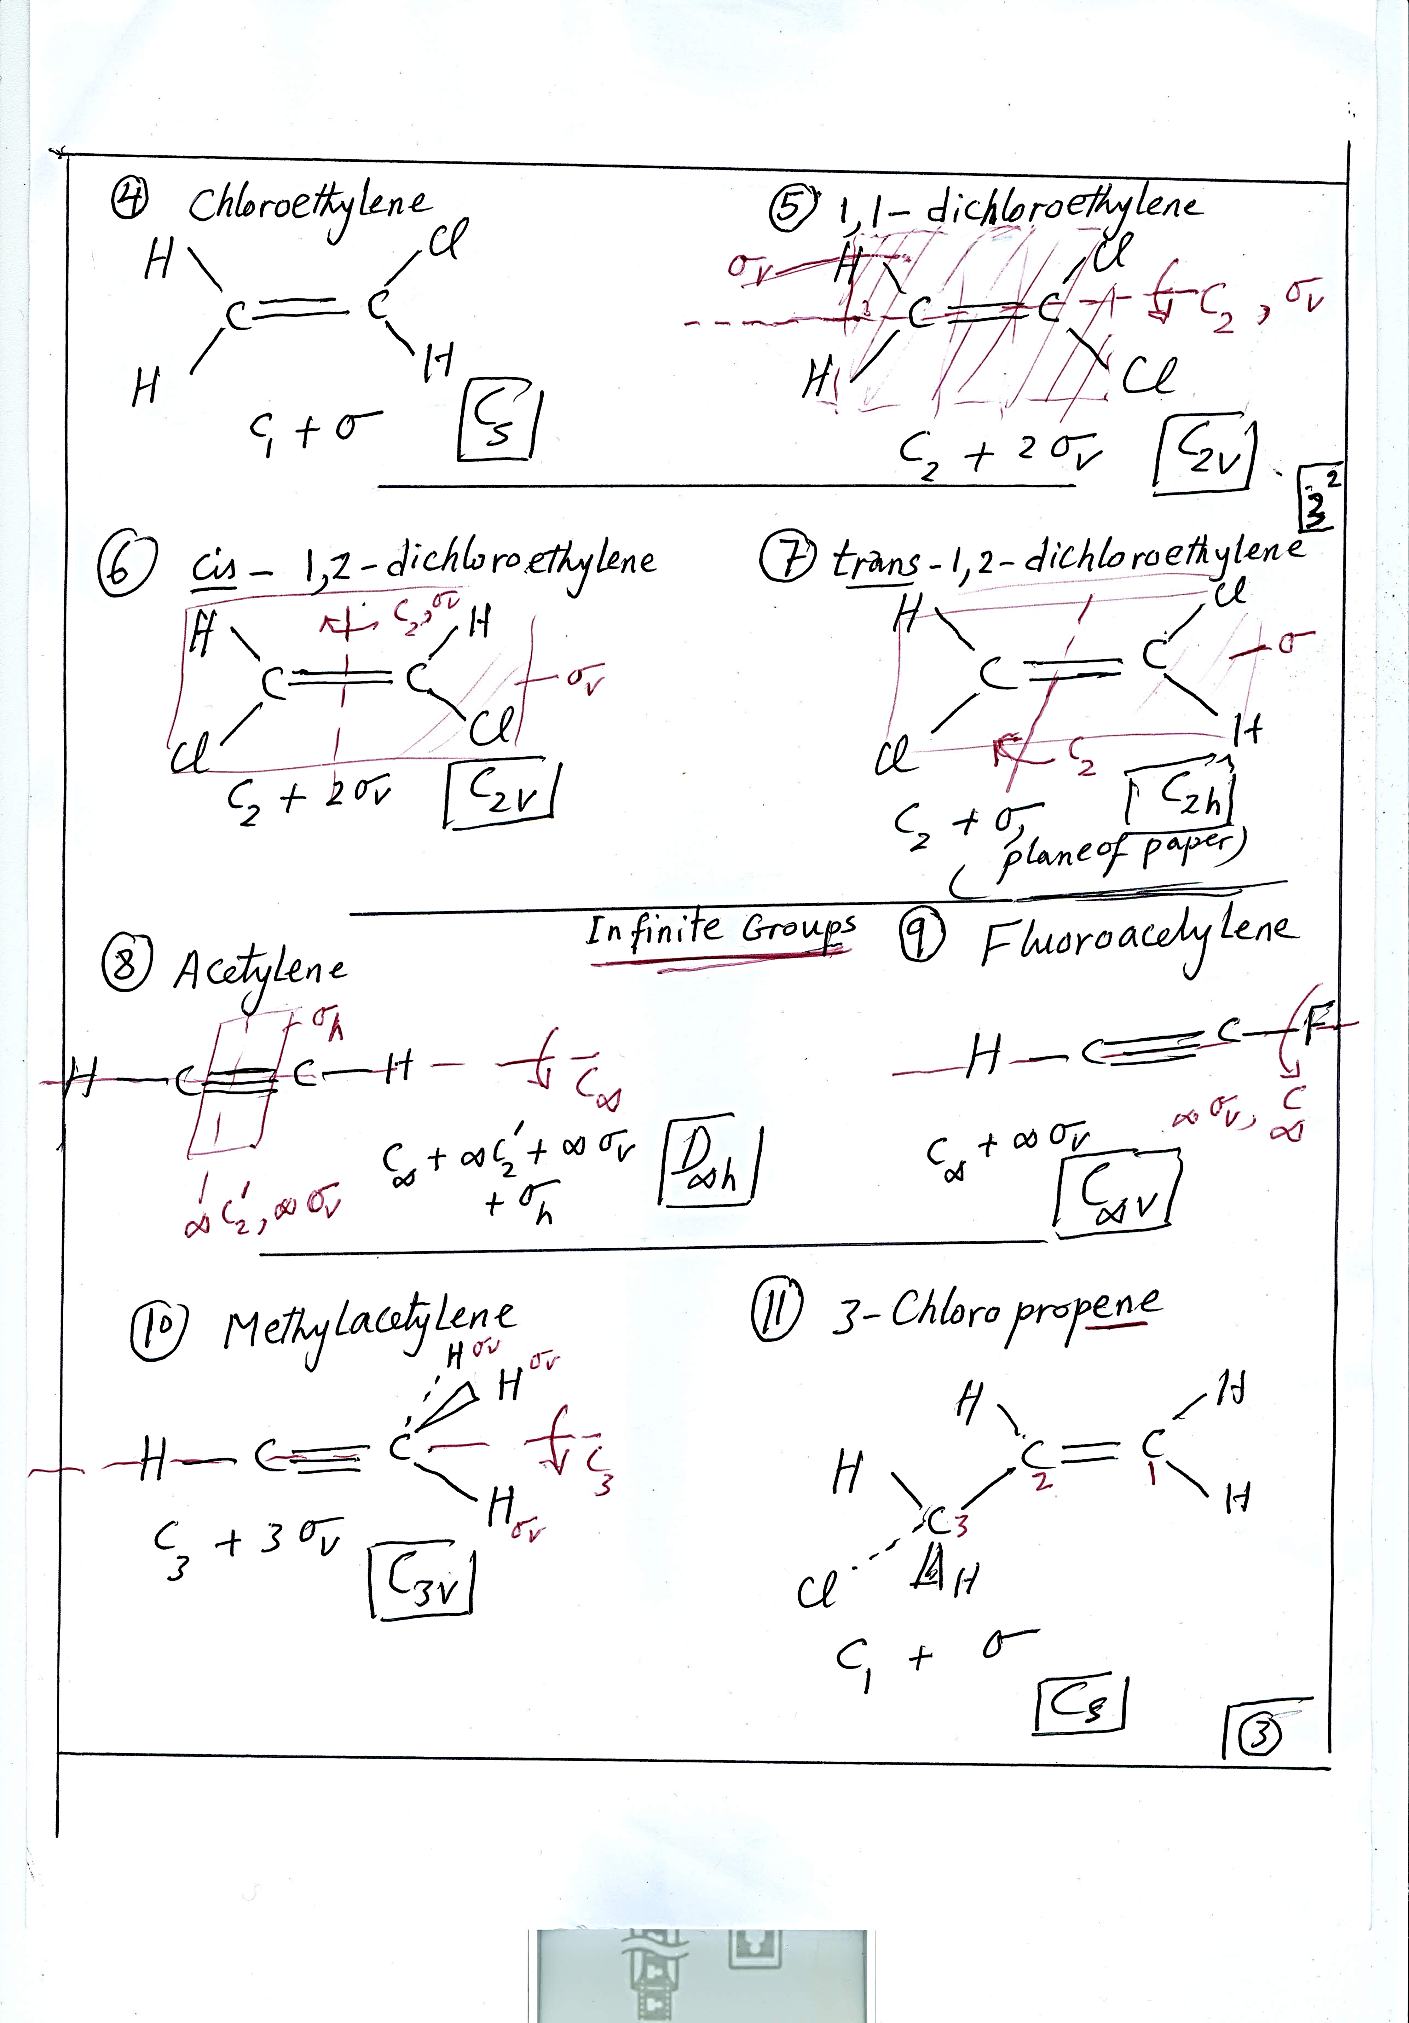 ④ Chloroethylene
H Cl
C = C
H H
C₁ + σ Cs
⑤ 1,1-dichloroethylene
σv H Cl
C = C C₂, σv
H Cl
C₂ + 2σv C₂v
⑥ cis - 1,2-dichloroethylene
C₂, σv
H H
C = C σv
Cl Cl
C₂ + 2σv C₂v
⑦ trans-1,2-dichloroethylene
H Cl
C = C σ
Cl H
C₂
C₂ + σ, C₂h
(plane of paper)
Infinite Groups
⑧ Acetylene
σh
H — C ≡ C — H C∞
C∞ + ∞C₂' + ∞σv D∞h
+ σh
∞C₂', ∞σv
⑨ Fluoroacetylene
H — C ≡ C — F
∞σv, C∞
C∞ + ∞σv
C∞v
⑩ Methylacetylene
H σv
H σv
H — C ≡ C C₃
H σv
C₃ + 3σv
C₃v
⑪ 3-Chloropropene
H H
H C = C
2 1
C 3 H
Cl H
C₁ + σ
Cs
③